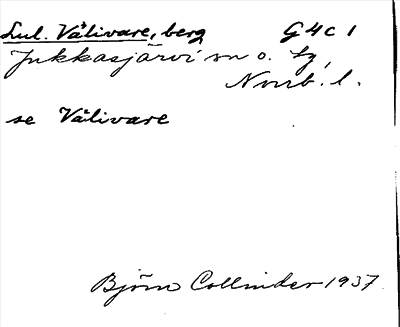 Lul. Välivare, berg G4c1
Jukkasjärvi sn o. tg,
Norrb. l.
se Välivare
Björn Collinder 1937